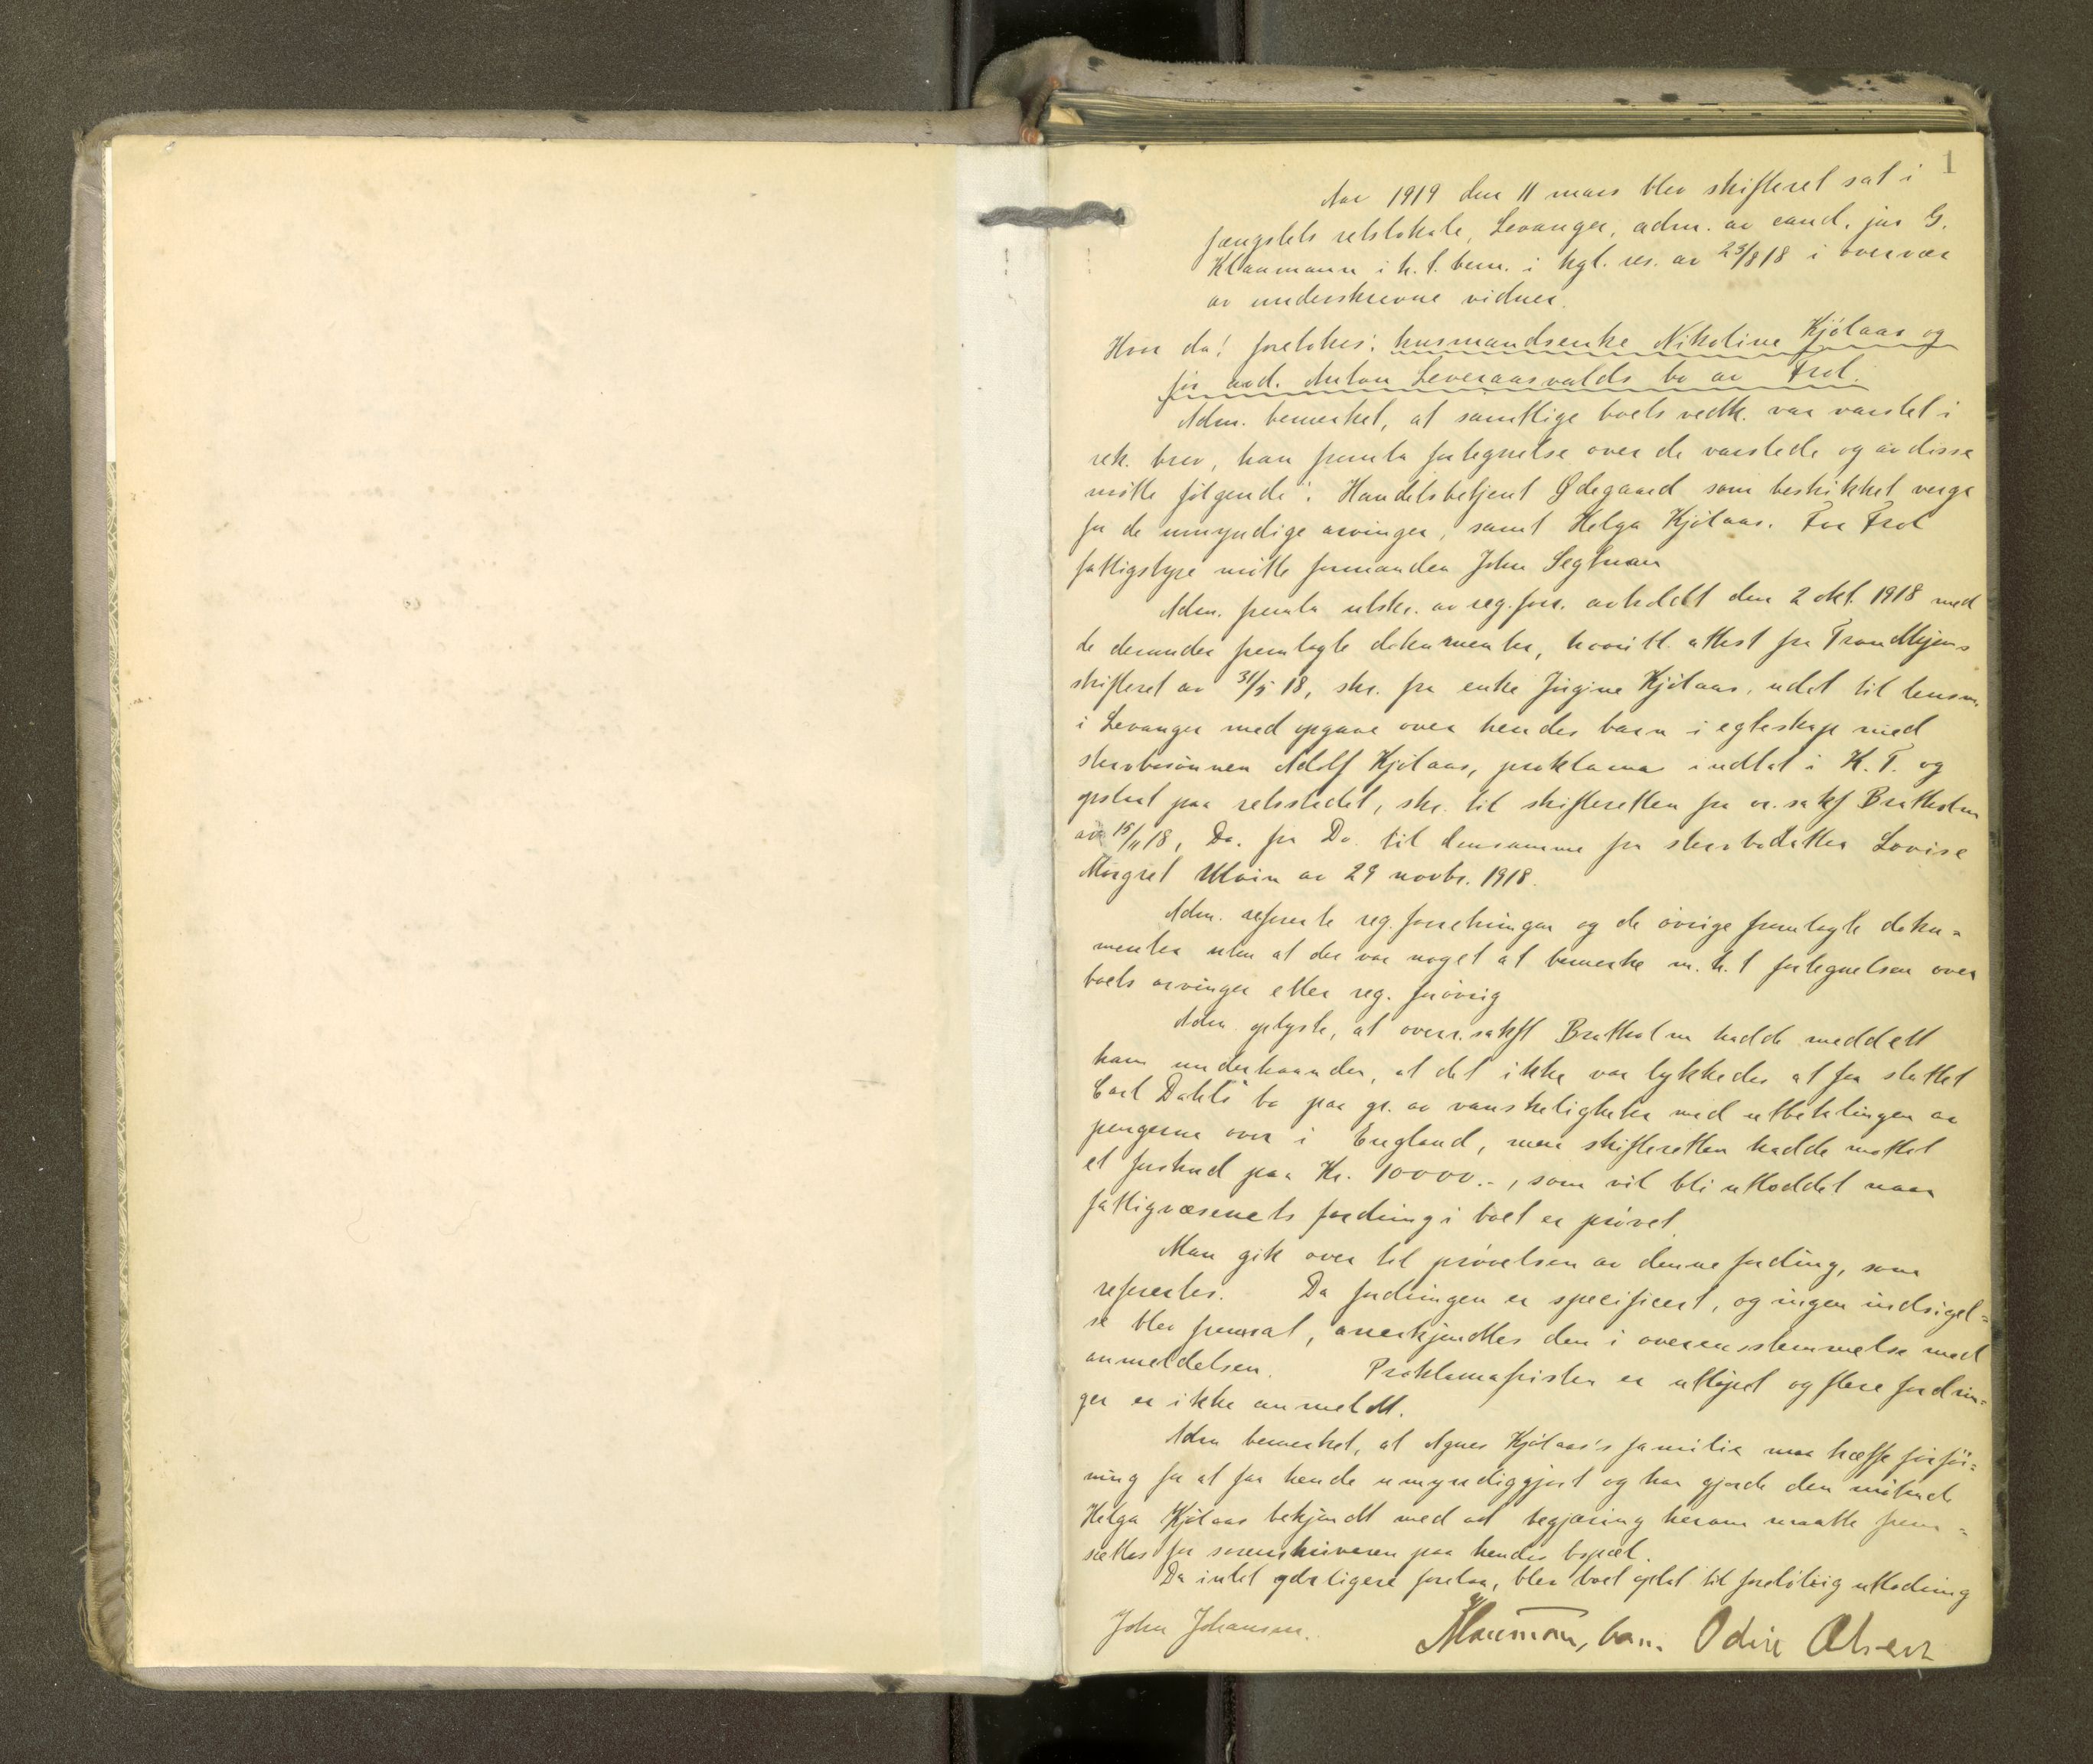 1
Aar 1919 den 11 mars blev skifteret sat i
fængslets retslokale, Levanger, adm. av cand. jur G.
Klaumann i h. t. bem. i kgl. res. av 23/8 18 i overvær
av underskrevne vidner.
Hvor da: foretokes: husmandsenke Nikoline Kjølaas og
før avd. Anton Leveraasvalds bo av Frol.
Adm. bemerket, at samtlige boets vedk. var varslet i
rek. brev, han fremla fortegnelse over de varslede og av disse
møtte følgende: Handelsbetjent Ødegaard som beskikket verge
for de umyndige arvinger, samt Helga Kjølaas. For Frol
fattigstyre møtte formanden John Segtnan
Adm. fremla utskr. av reg.forr. avholdt den 2 okt. 1918 med
de derunder fremlagte dokumenter, hvoritl. attest fra Trondhjems
skifteret av 31/5 18, skr. fra enke Jørgine Kjølaas, uddt til lensm.
i Levanger med opgave over hendes barn i egteskap med
stervbosønnen Adolf Kjølaas, proklama indtat i K. T. og
opslaat paa retsstedet, skr. til skifteretten fra or. sakf Bratholm
av 15/11 18, Do. fra Do. til densamme fra stervbodatter Lovise
Margret Moin av 29 novbr. 1918.
Adm. refererte reg.forretningen og de øvrige fremlagte doku-
menter uten at der var noget at bemerke m. h. t fortegnelsen over
boets arvinger eller reg. forøvrig
Adm. oplyste, at overr.sakf Bratholm hadde meddelt
ham underhaanden, at det ikke var lykkedes at faa sluttet
Carl Dahls bo paa gr. av vanskeligheter med utbetalingen av
pengerne over i England, men skifteretten hadde mottat
et forskud paa Kr. 10000.-, som vil bli utloddet naar
fattigvæsenets fordring i boet er prøvet.
Man gik over til prøvelsen av denne fordring, som
refereres. Da fordringen er specificert, og ingen indsigel-
se blev fremsat, anerkjendtes den i overensstemmelse med
anmeldelsen. Proklamafristen er utløpet og flere fordrin-
ger er ikke anmeldt.
Adm bemerket, at Agnes Kjølaas's familie maa træffe forføi-
ning for at faa hende umyndiggjort og han gjorde den møtende
Helga Kjølaas bekjendt med at begjæring herom maatte frem-
sættes for sorenskriveren paa hendes bopæl.
Da intet yderligere forelaa, blev boet optat til foreløbig utlodning
John Johansen. Klaumann, const. Odin Olsen